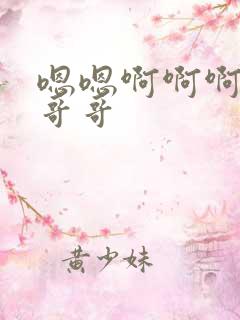 嗯嗯啊啊啊
哥哥
黄少妹